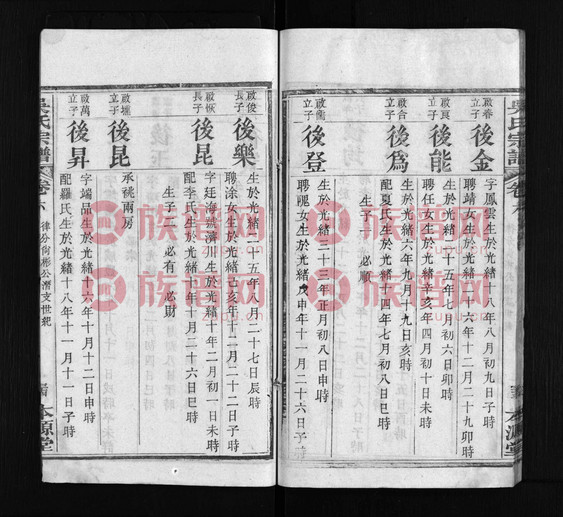 吳氏宗譜
卷
本源堂
啟春
立子
後金
字鳳雲生於光緒十八年八月初九日子時
聘靖女生於光緒十六年十二月二十九卯時
啟良
立子
後能
生於光緒二十五年七月初六日卯時
聘任女生於光緒辛亥年四月初十日未時
啟合
立子
後為
生於光緒六年九月十九日亥時
配夏氏生於光緒十四年七月初八日巳時
生子一 必順
啟衢
立子
後登
生於光緒三十三年正月初八日申時
聘女生於光緒戊申年十一月二十六日子時
啟俊
長子
後樂
生於光緒二十五年八月二十七日辰時
聘涂女生於光緒己亥年十二月二十二日子時
啟恢
長子
後昆
字廷海號濟川生於光緒十年二月初一日未時
配李氏生於光緒十年十月二十六日巳時
生子二 必有 必財
啟
立子
後昆
承祧兩房
啟萬
立子
後昇
字端品生於光緒十六年十月十二日申時
配羅氏生於光緒十八年十一月十一日子時
吳氏宗譜
卷
律分尚彬公潛支世紀
本源堂
族谱网
族谱网
族谱网
族谱网